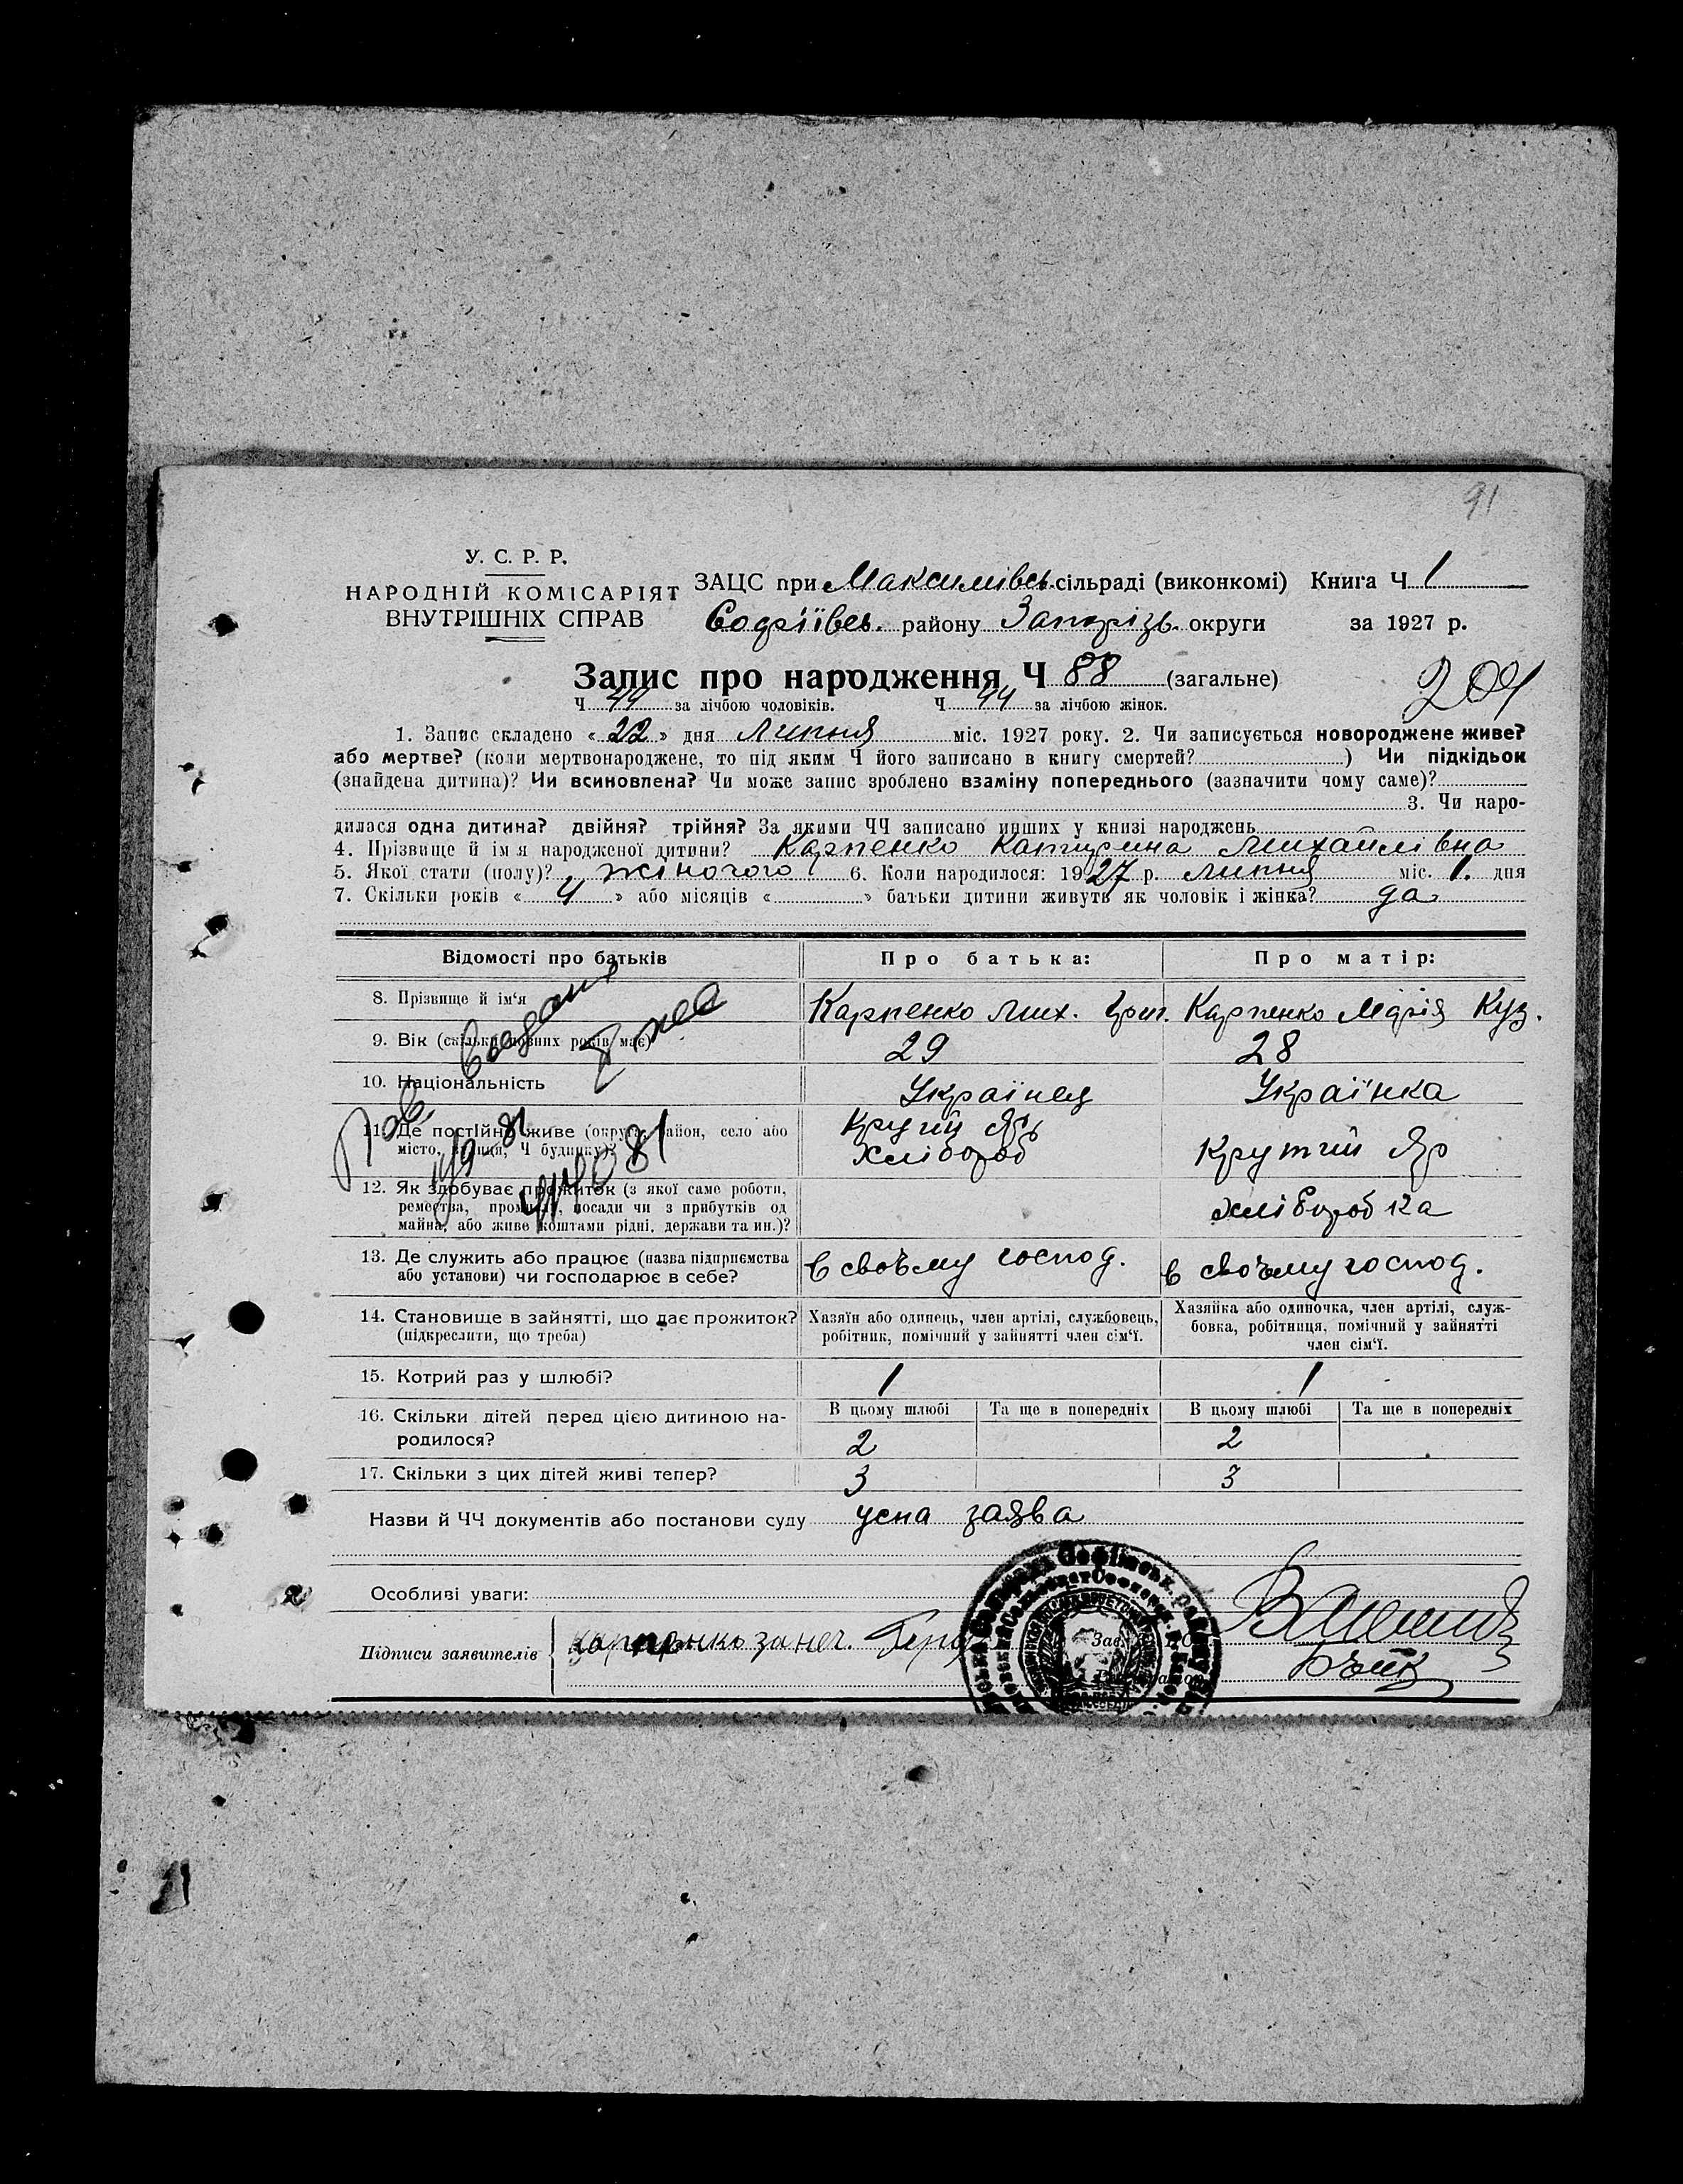 91
У. С. Р. Р.
НАРОДНІЙ КОМІСАРІЯТ
ВНУТРІШНІХ СПРАВ
ЗАЦС при Максимівсь. сільраді (виконкомі) Книга Ч 1
Софіївсь. району Запоріз. округи за 1927 р.
Запис про народження Ч 88 (загальне)
Ч 44 за лічбою чоловіків. Ч 44 за лічбою жінок.
1. Запис складено « 22 » дня Липня міс. 1927 року. 2. Чи записується новороджене живе?
або мертве? (коли мертвонароджене, то під яким Ч його записано в книгу смертей? ) Чи підкідьок
(знайдена дитина)? Чи всиновлена? Чи може запис зроблено взаміну попереднього (зазначити чому саме)?
3. Чи наро-
дилася одна дитина? двійня? трійня? За якими ЧЧ записано инших у книзі народжень
4. Прізвище й ім'я народженої дитини? Карпенко Катирина Михайлівна
5. Якої стати (полу)? жіночого 6. Коли народилося: 1927 р. липня міс. 1. дня
7. Скільки років « 4 » або місяців « » батьки дитини живуть як чоловік і жінка? да
Відомості про батьків Про батька: Про матір:
8. Прізвище й ім'я Карпенко Мих. Григ. Карпенко Марія Куз.
9. Вік (скільки повних років має) 29 28
10. Національність Українец Українка
11. Де постійно живе (округа, район, село або
місто, вулиця, Ч будинку)? Крутий Яр Крутий Яр
хлібороб
12. Як здобуває прожиток (з якої саме роботи,
ремества, промислу, посади чи з прибутків од
майна, або живе коштами рідні, держави та ин.)? хліборобка
13. Де служить або працює (назва підприємства
або установи) чи господарює в себе? в своъму господ. в своъму господ.
14. Становище в зайнятті, що дає прожиток?
(підкреслити, що треба)
Хазяїн або одинець, член артілі, службовець,
робітник, помічний у зайнятті член сім'ї.
Хазяйка або одиночка, член артілі, служ-
бовка, робітниця, помічний у зайнятті
член сім'ї.
15. Котрий раз у шлюбі? 1 1
16. Скільки дітей перед цією дитиною на-
родилося?
В цьому шлюбі Та ще в попередніх В цьому шлюбі Та ще в попередніх
2 2
17. Скільки з цих дітей живі тепер? 3 3
Назви й ЧЧ документів або постанови суду усна заява
Особливі уваги:
Підписи заявителів Карпенко за нег.